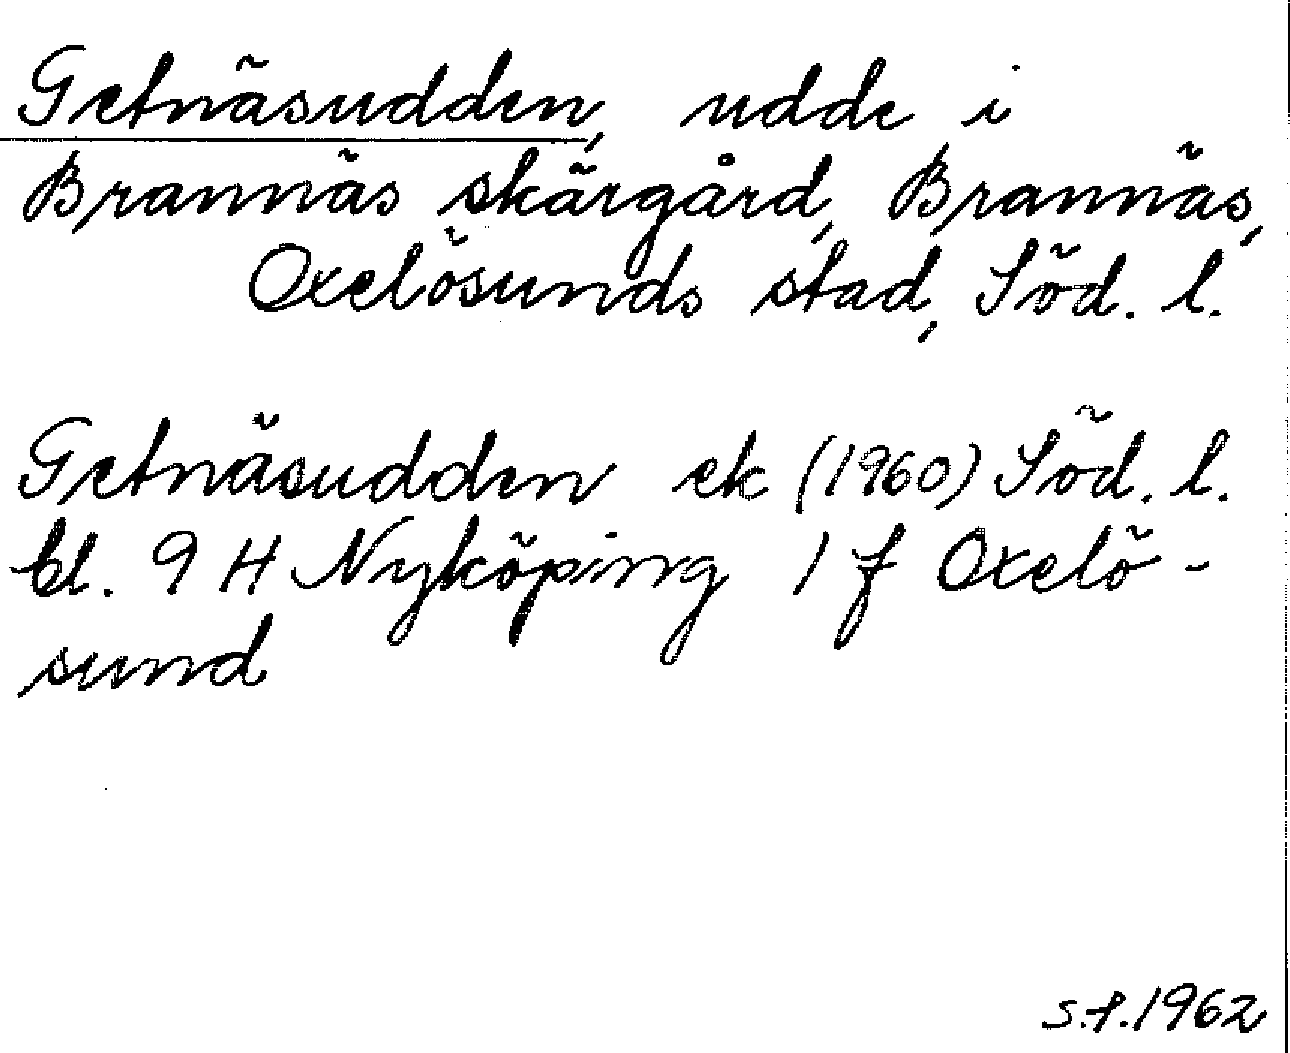 Getnäsudden, udde i
Brannäs skärgård, Brannäs,
Oxelösunds stad, Söd. l.
Getnäsudden ek (1960) Söd. l.
bl. 9 H Nyköping 1 f Oxelö-
sund
s.f. 1962